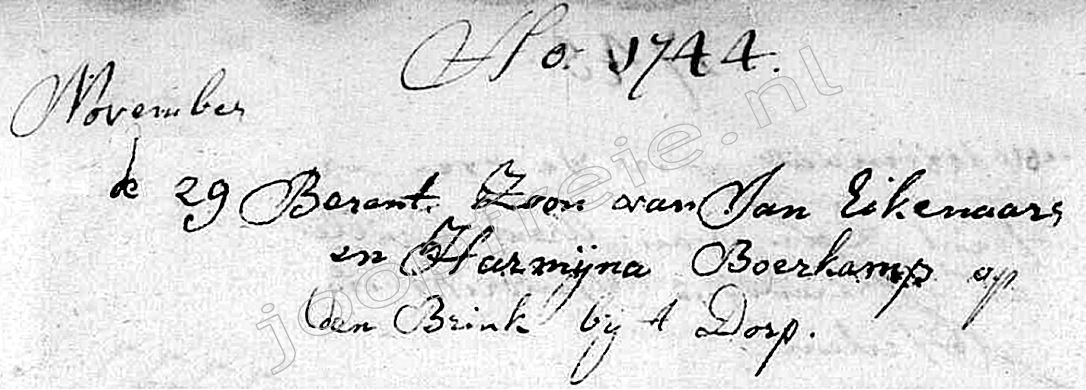 Ao. 1744.
November
de 29 Berent. Zoon van Jan Eikenaars
en Harmijna Boerkamp op
den Brink by t Dorp.
joopfreie.nl